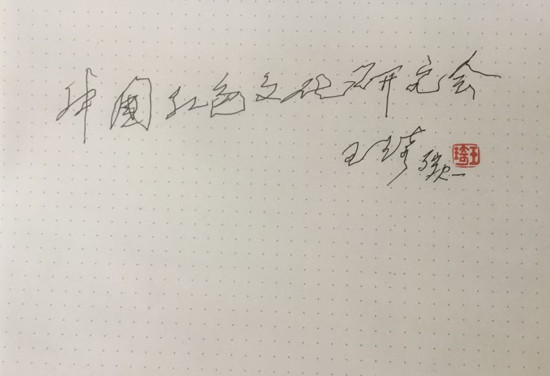 中國红色文化研究会
王琦 题
王琦